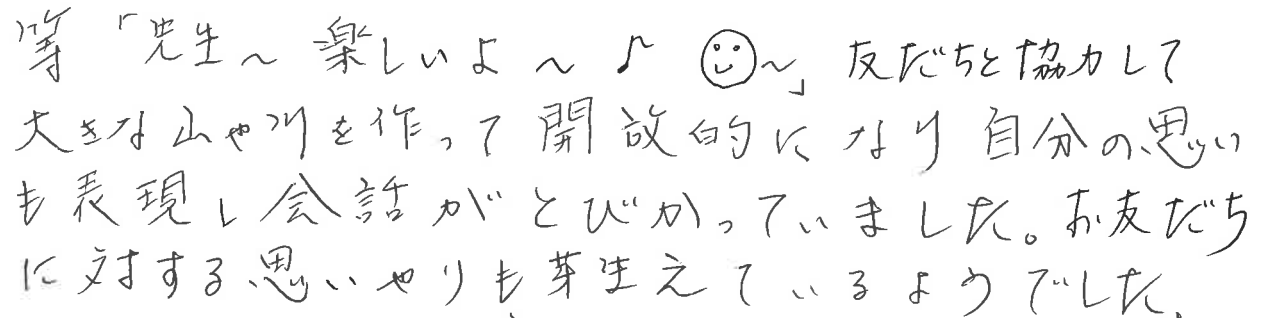 等「先生～楽しいよ～♪ ☺～」友だちと協力して
大きな山や川を作って開放的になり自分の思い
も表現し会話がとびかっていました。お友だち
に対する思いやりも芽生えているようでした。